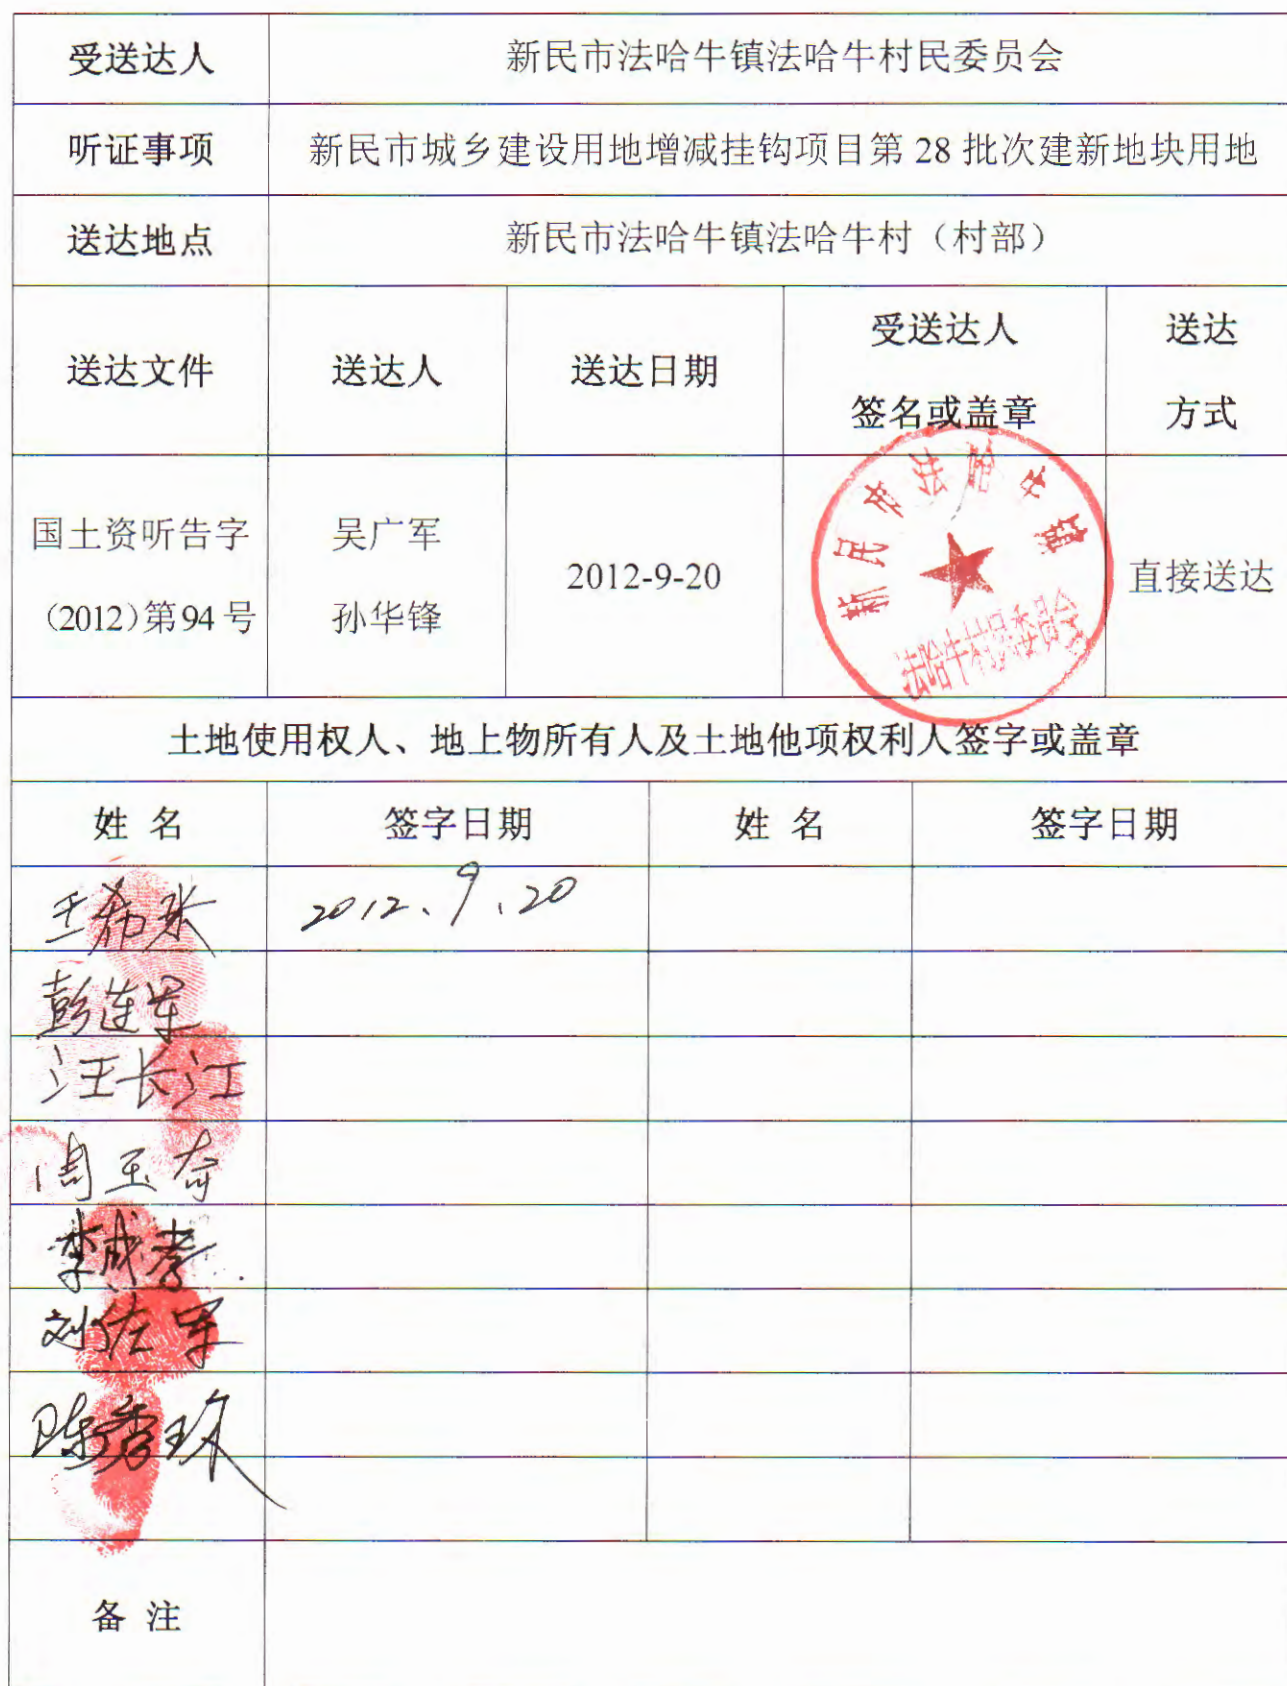 受送达人 新民市法哈牛镇法哈牛村民委员会
听证事项 新民市城乡建设用地增减挂钩项目第 28 批次建新地块用地
送达地点 新民市法哈牛镇法哈牛村（村部）
送达文件 送达人 送达日期 受送达人 签名或盖章 送达 方式
国土资听告字 吴广军 2012-9-20 直接送达
(2012)第94号 孙华锋
新民市法哈牛镇
法哈牛村民委员会
土地使用权人、地上物所有人及土地他项权利人签字或盖章
姓 名 签字日期 姓 名 签字日期
王希 2012.9.20
彭连军
汪长江
周玉奇
李成孝
刘佐军
陈秀
备 注